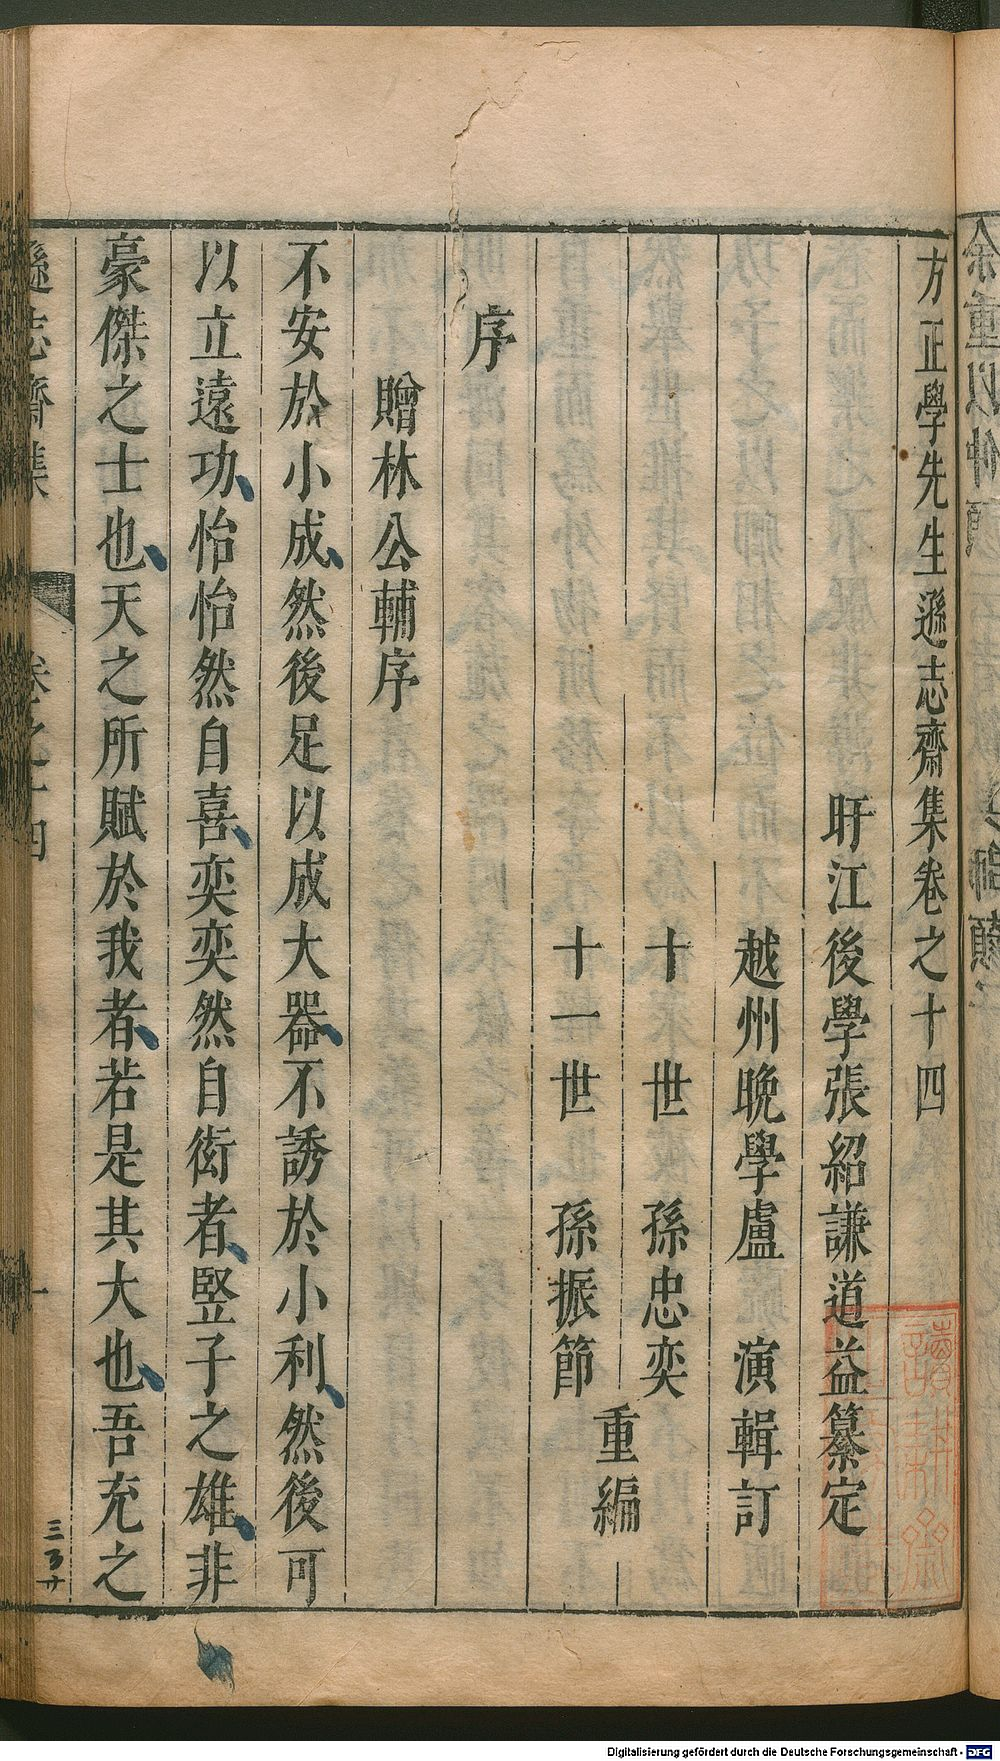 方正學先生遜志齋集卷之十四
盱江後學張紹謙道益纂定
越州晚學盧 演輯訂
十 世 孫忠奕
十一世 孫振節
重編
序
贈林公輔序
不安於小成然後足以成大器不誘於小利然後可
以立遠功怡怡然自喜奕奕然自衒者豎子之雄非
豪傑之士也天之所賦於我者若是其大也吾充之
遜志齋集 卷之十四 一
Digitalisierung gefördert durch die Deutsche Forschungsgemeinschaft - DFG